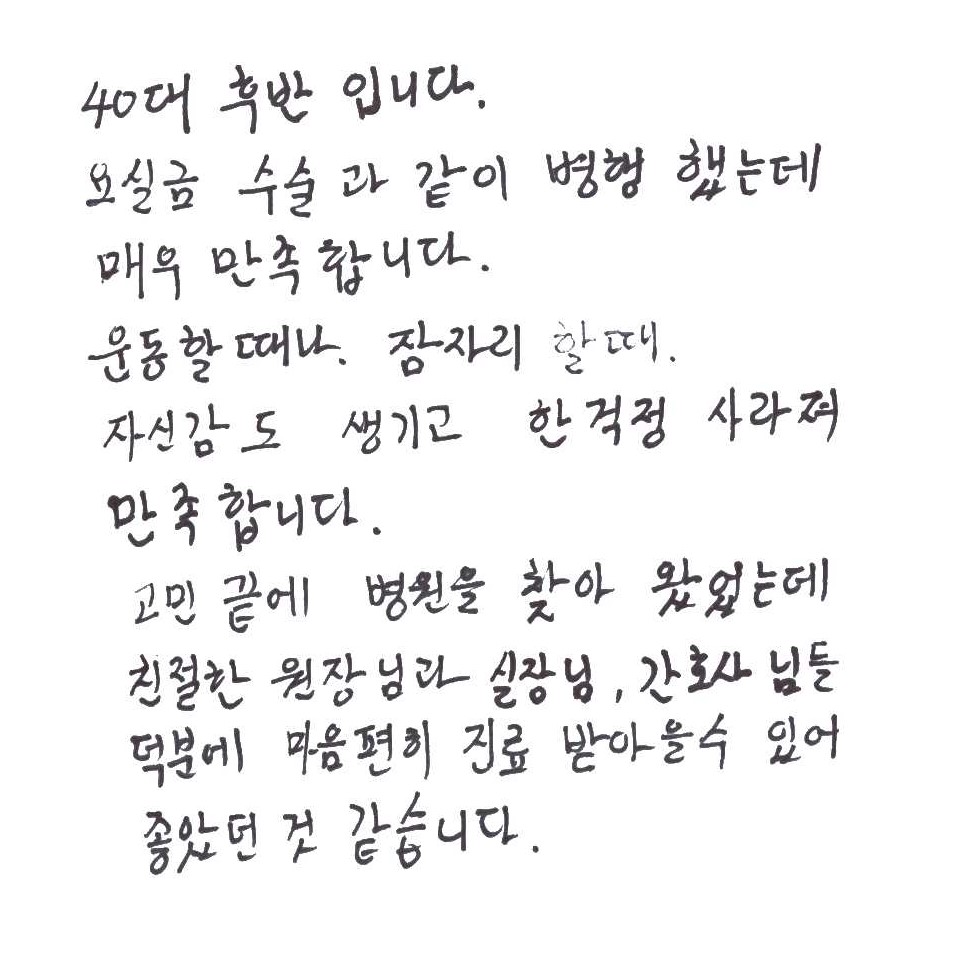 40대 후반 입니다.
요실금 수술과 같이 병행 했는데
매우 만족합니다.
운동할때나. 잠자리 할때.
자신감도 생기고 한걱정 사라져
만족합니다.
고민 끝에 병원을 찾아 왔었는데
친절한 원장님과 실장님, 간호사님들
덕분에 마음편히 진료 받아을수 있어
좋았던 것 같습니다.